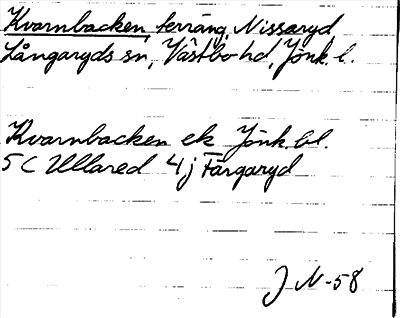 Kvarnbacken, terräng, Nissaryd,
Långaryds sn, Västbo hd, Jönk. l.
Kvarnbacken ek Jönk. bl.
5 C Ullared 4 j Färgaryd
J N-58